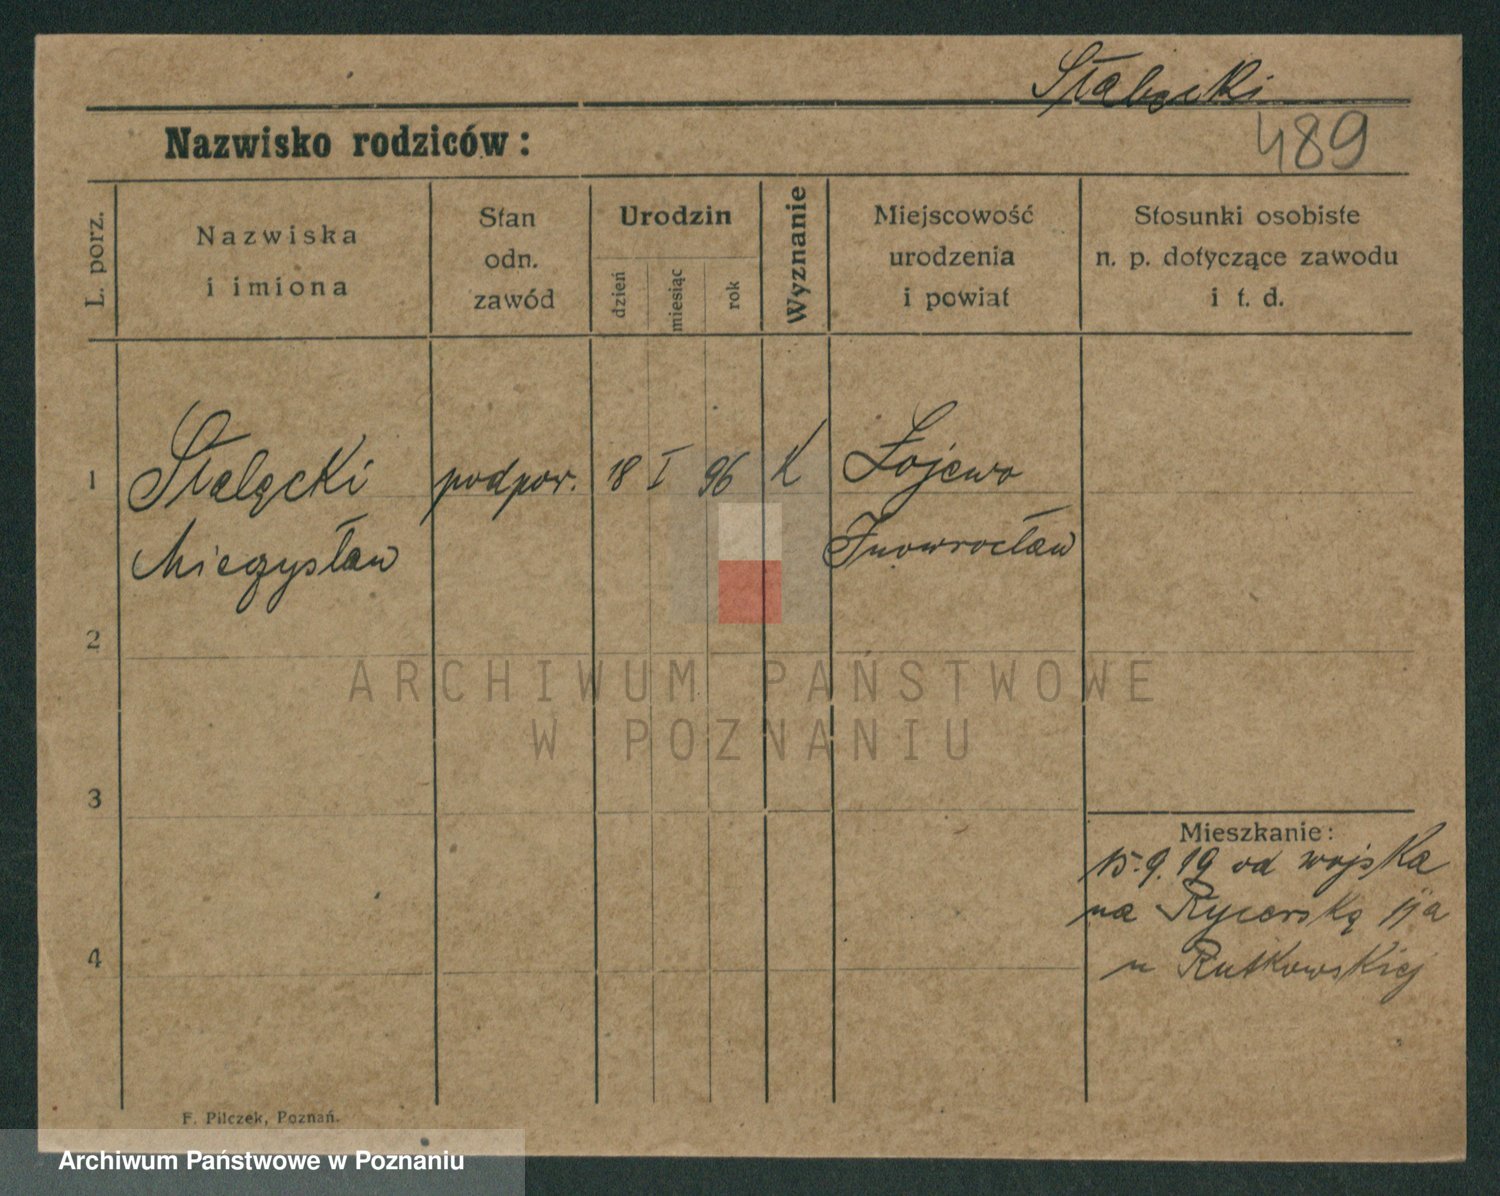 Stabęcki
489
Nazwisko rodziców:
L. porz.
Nazwiska
i imiona
Stan
odn.
zawód
Urodzin
dzień
miesiąc
rok
Wyznanie
Miejscowość
urodzenia
i powiat
Stosunki osobiste
n. p. dotyczące zawodu
i t. d.
1
podpor. 18 I 96 K Łojewo
Mieczysław
Inowrocław
2
ARCHIWUM PAŃSTWOWE
W POZNANIU
3
Mieszkanie:
15.9.19 od wojska
na Rycerską 11a
u Rutkowskiej
4
F. Pilczek, Poznań.
Archiwum Państwowe w Poznaniu